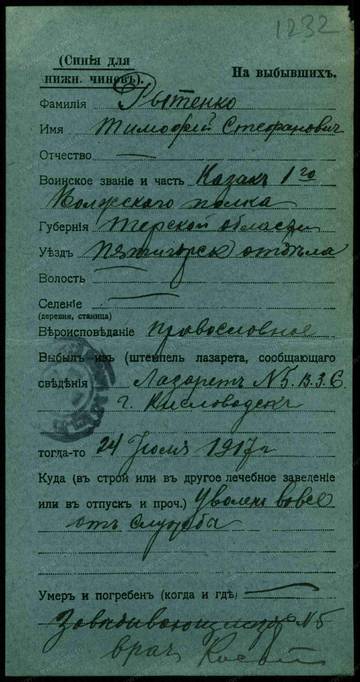 1232
(Синія для нижн. чиновъ).
На выбывшихъ.
Фамилія Рытенко
Имя Тимофій Стефановичъ
Отчество —
Воинское званіе и часть Казакъ 1го
Волжского полка
Губернія Терской области
Уѣздъ Пятигорск отдѣла
Волость —
Селеніе —
(деревня, станица)
Вѣроисповѣданіе православное
Выбылъ изъ (штемпель лазарета, сообщающаго
свѣдѣнія Лазаретъ №5. В.З.С.
г. Кисловодскъ
тогда-то 24 Іюля 1917г
Куда (въ строй или въ другое лечебное заведеніе
или въ отпускъ и проч.) Уволенъ вовсе
отъ службы
Умеръ и погребенъ (когда и гдѣ) —
№5
врач